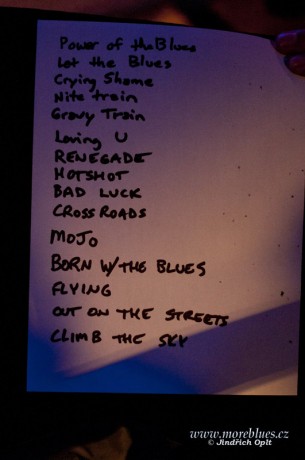 Power of the Blues
Got the Blues
Crying Shame
Nite train
Gravy Train
Loving U
RENEGADE
HOTSHOT
BAD LUCK
CROSSROADS
MOJO
BORN W/THE BLUES
FLYING
OUT ON THE STREETS
CLIMB THE SKY
www.moreblues.cz
© Jindřich Oplt